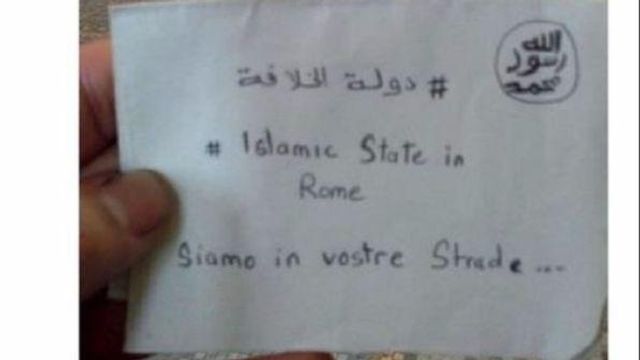 الله
رسول
محمد
# دولة الخلافة
# Islamic State in
Rome
Siamo in vostre Strade ...